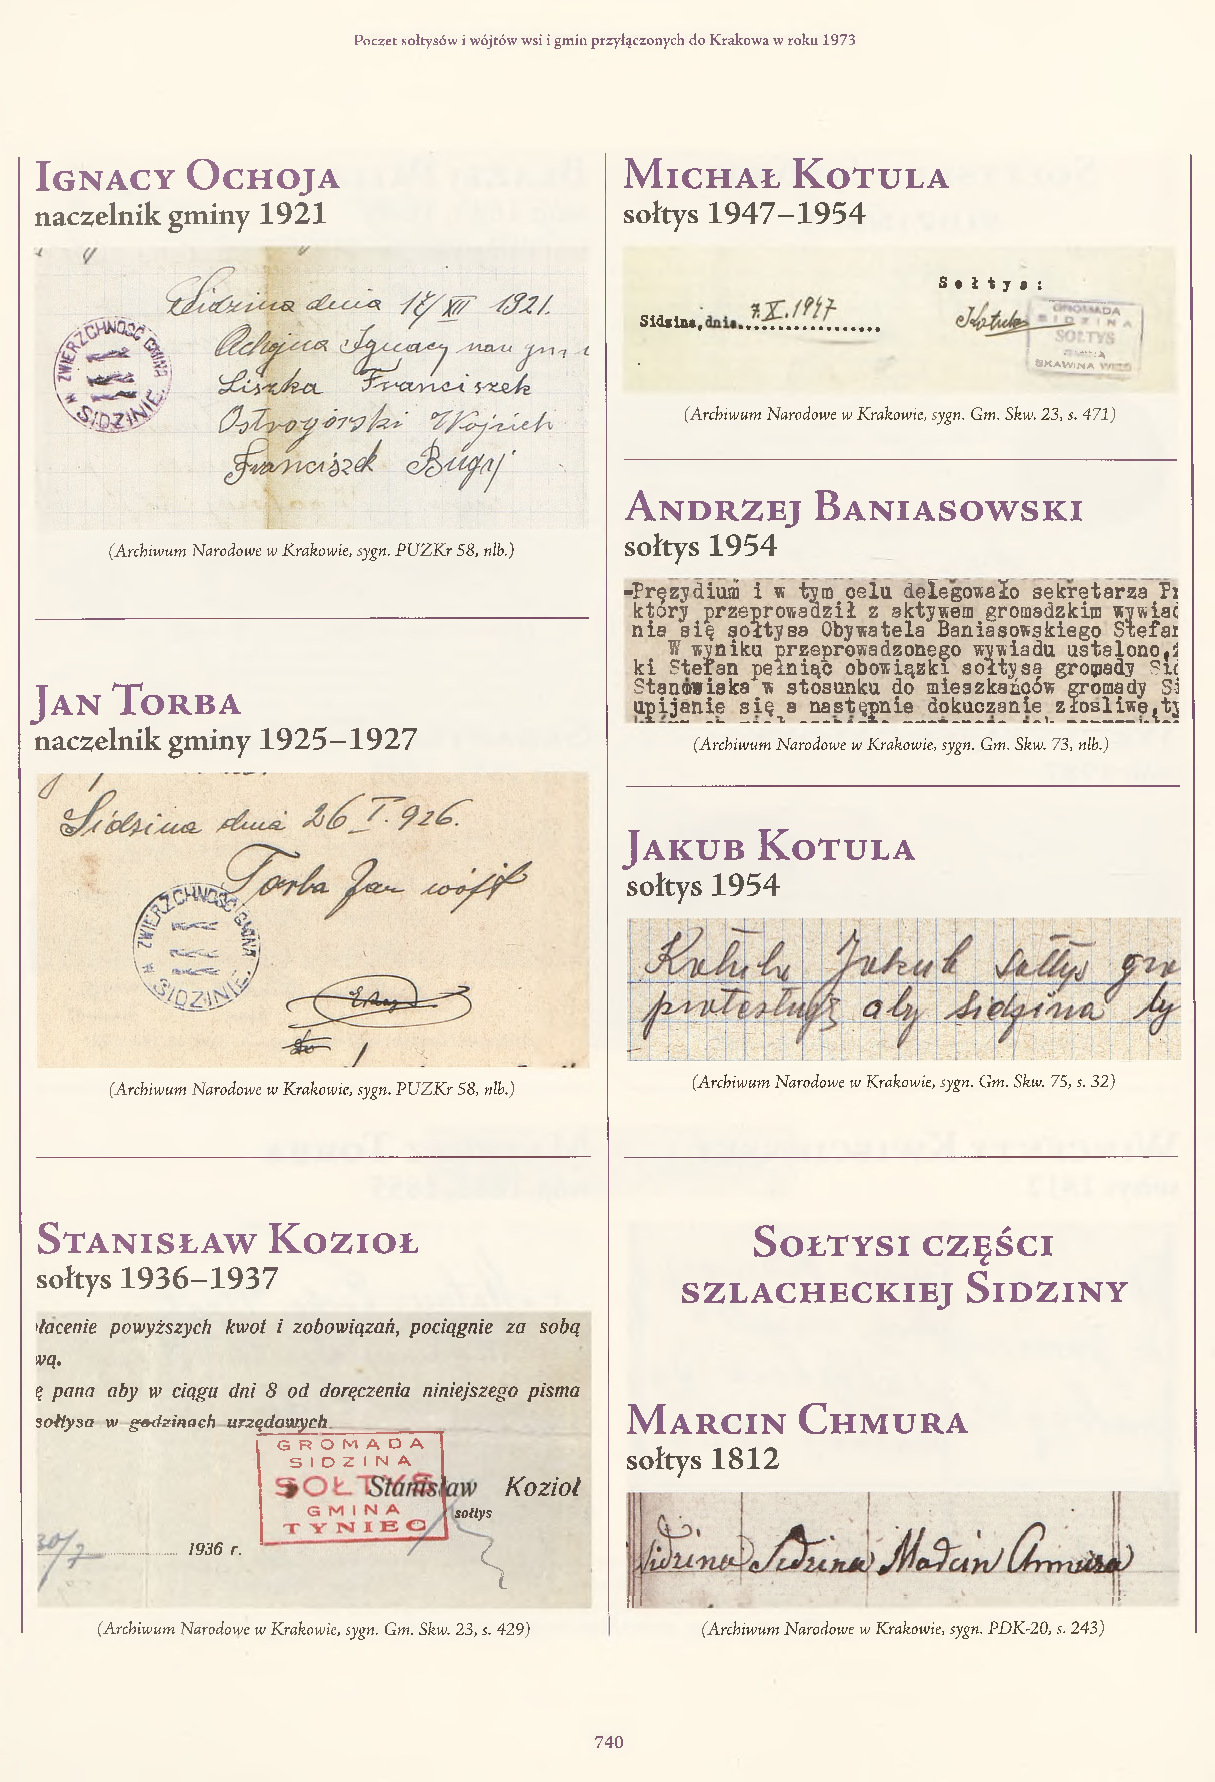 Poczet sołtysów i wójtów wsi i gmin przyłączonych do Krakowa w roku 1973
Ignacy Ochoja
naczelnik gminy 1921
Sidzina dnia 17/XII 1921.
Ochojna Ignacy nacz gmi
Liszka Franciszek
Ostrogórski Wojciech
Franciszek Bugaj
ZWIERZCHNOŚĆ GMINNA
W SIDZINIE.
(Archiwum Narodowe w Krakowie, sygn. PUZKr 58, nlb.)
Jan Torba
naczelnik gminy 1925–1927
Sidzina dnia 26 I. 926.
Torba Jan wójt
ZWIERZCHNOŚĆ GMINNA
W SIDZINIE.
(Archiwum Narodowe w Krakowie, sygn. PUZKr 58, nlb.)
Stanisław Kozioł
sołtys 1936–1937
łacenie powyższych kwot i zobowiązań, pociągnie za sobą
wą.
ę pana aby w ciągu dni 8 od doręczenia niniejszego pisma
sołtysa w godzinach urzędowych
GROMADA
SIDZINA
SOŁTYS
GMINA
TYNIEC
Stanisław Kozioł
sołtys
30/7 1936 r.
(Archiwum Narodowe w Krakowie, sygn. Gm. Skw. 23, s. 429)
Michał Kotula
sołtys 1947–1954
Sołtys:
Sidzina,dnia. 7.X.1947
Kotula
GROMADA
SIDZINA
SOŁTYS
GMINA
SKAWINA WIEŚ
(Archiwum Narodowe w Krakowie, sygn. Gm. Skw. 23, s. 471)
Andrzej Baniasowski
sołtys 1954
-Prezydium i w tym celu delegowało sekretarza Pr
który przeprowadził z aktywem gromadzkim wywiad
nia się sołtysa Obywatela Baniasowskiego Stefan
W wyniku przeprowadzonego wywiadu ustalono,ż
ki Stefan pełniąc obowiązki sołtysa gromady Sid
Stanowiska w stosunku do mieszkańców gromady Si
upijanie się a następnie dokuczanie złosliwe,ty
(Archiwum Narodowe w Krakowie, sygn. Gm. Skw. 73, nlb.)
Jakub Kotula
sołtys 1954
Kotula Jakub sołtys gro
protestuję aby Sidzina by
(Archiwum Narodowe w Krakowie, sygn. Gm. Skw. 75, s. 32)
Sołtysi części
szlacheckiej Sidziny
Marcin Chmura
sołtys 1812
Sidzina Sidzina Marcin Chmura
(Archiwum Narodowe w Krakowie, sygn. PDK-20, s. 243)
740